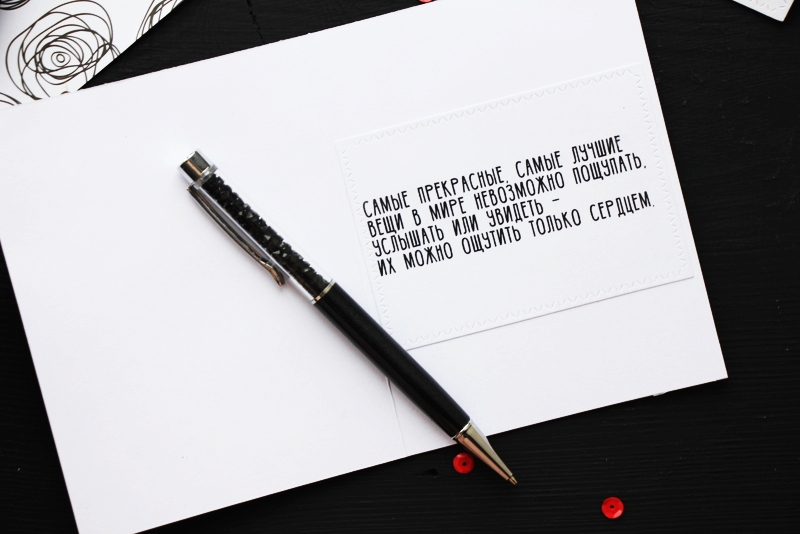 САМЫЕ ПРЕКРАСНЫЕ, САМЫЕ ЛУЧШИЕ
ВЕЩИ В МИРЕ НЕВОЗМОЖНО ПОЩУПАТЬ,
УСЛЫШАТЬ ИЛИ УВИДЕТЬ –
ИХ МОЖНО ОЩУТИТЬ ТОЛЬКО СЕРДЦЕМ.